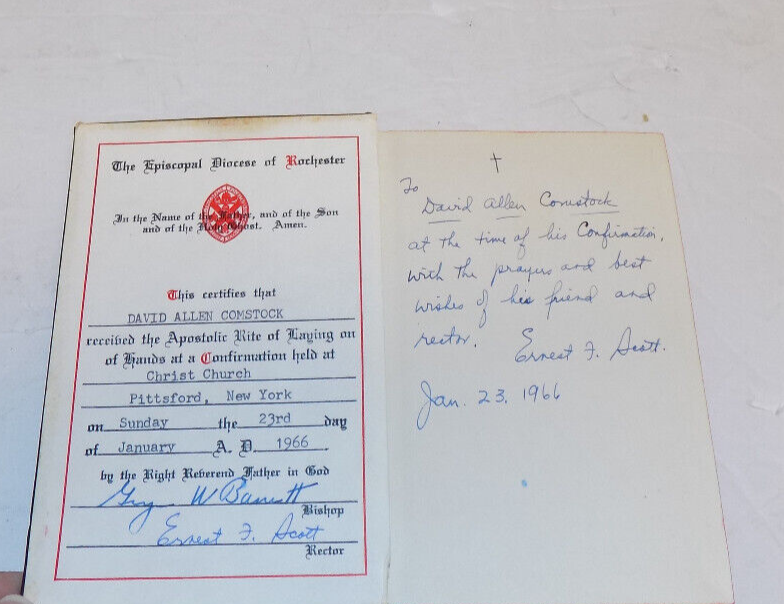 The Episcopal Diocese of Rochester
In the Name of the Father, and of the Son
and of the Holy Ghost. Amen.
This certifies that
DAVID ALLEN COMSTOCK
received the Apostolic Rite of Laying on
of Hands at a Confirmation held at
Christ Church
Pittsford, New York
on Sunday the 23rd day
of January A. D. 1966
by the Right Reverend Father in God
W Barrett
Bishop
Ernest F. Scott
Rector
To
David Allen Comstock
at the time of his Confirmation,
with the prayers and best
wishes of his friend and
rector.
Ernest F. Scott.
Jan. 23, 1966